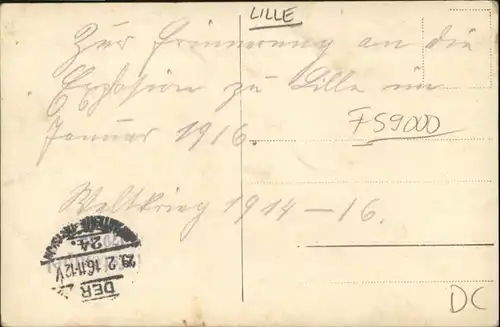 LILLE
Zur Erinnerung an die
Explosion zu Lille im
Januar 1916.
FS9000
Weltkrieg 1914-16.
24.
29.2.16.11-12V
DER
DC